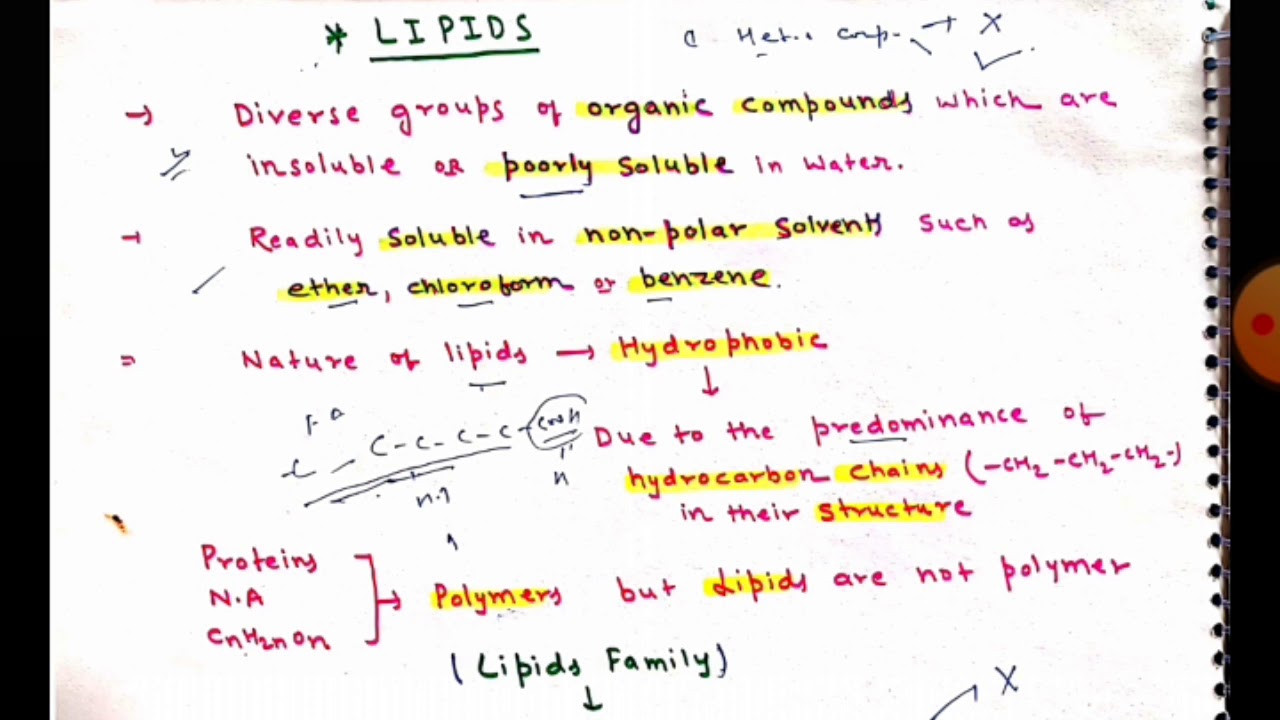 * LIPIDS
C Het.. comp. → X
→ Diverse groups of organic compounds which are
insoluble OR poorly soluble in water.
→ Readily soluble in non-polar solvents such as
ether, chloroform or benzene.
= Nature of lipids → Hydrophobic
↓
C-C-C-C-
Due to the predominance of
n
hydrocarbon chains (-CH2-CH2-CH2-)
in their structure
Proteins
N.A
CnH2nOn
→ Polymers but Lipids are not polymer
(Lipids Family)
↓
X